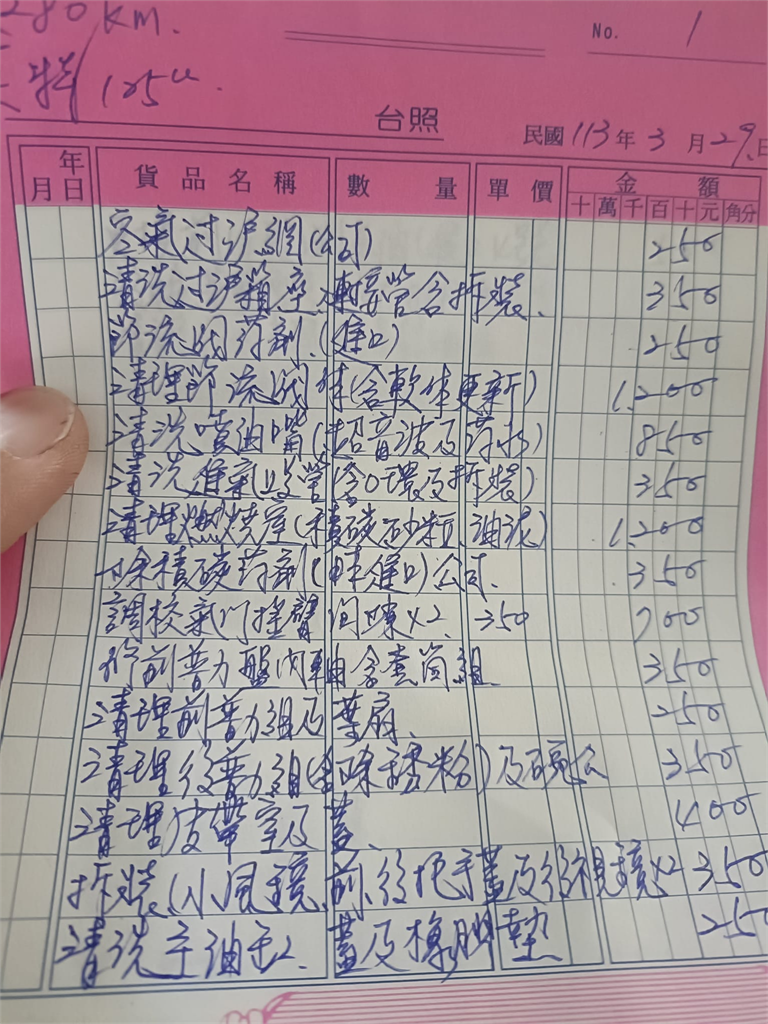 280km.
No. 1
125cc.
台照
民國113年3月29日
年 月日 貨品名稱 數量 單價 金額
十萬千百十元角分
空氣过沪網(公司) 250
清洗过沪箱座.連接管含拆裝. 350
節流阀葯劑.(進口) 250
清理節流阀体(含軟体更新) 1,200
清洗噴油嘴(超音波及葯水) 850
清洗進氣歧管(含O環及拆裝) 350
清理燃烧室(積碳砂粒油泥) 1,200
除積碳葯劑(進口)公司. 350
調校氣門搖臂间隙x2. 350 700
前普力盤內軸含套筒組. 350
清理前普力組及葉扇. 250
清理後普力組(含除锈粉)及碗公 350
清理皮帶室及蓋. 400
拆裝.小風鏡.前.後把手蓋及後視鏡x2 350
清洗主油缸.蓋及橡膠墊 250